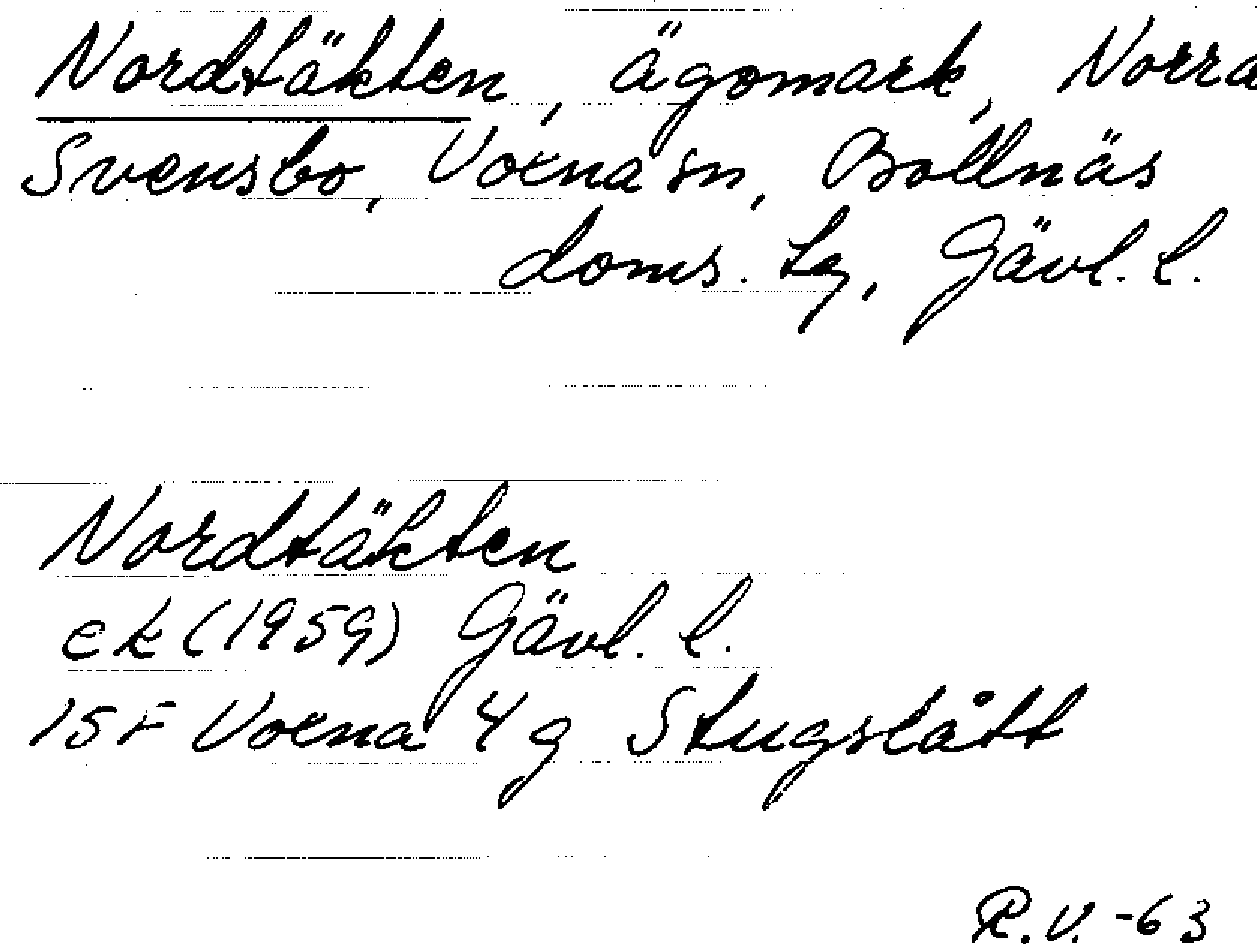 Nordtäkten, ägomark, Norra
Svensbo, Voxna sn, Bollnäs
doms. tg, Gävl. l.
Nordtäkten
ek (1959) Gävl. l.
15F Voxna 4 g Stugslått
R.V. -63